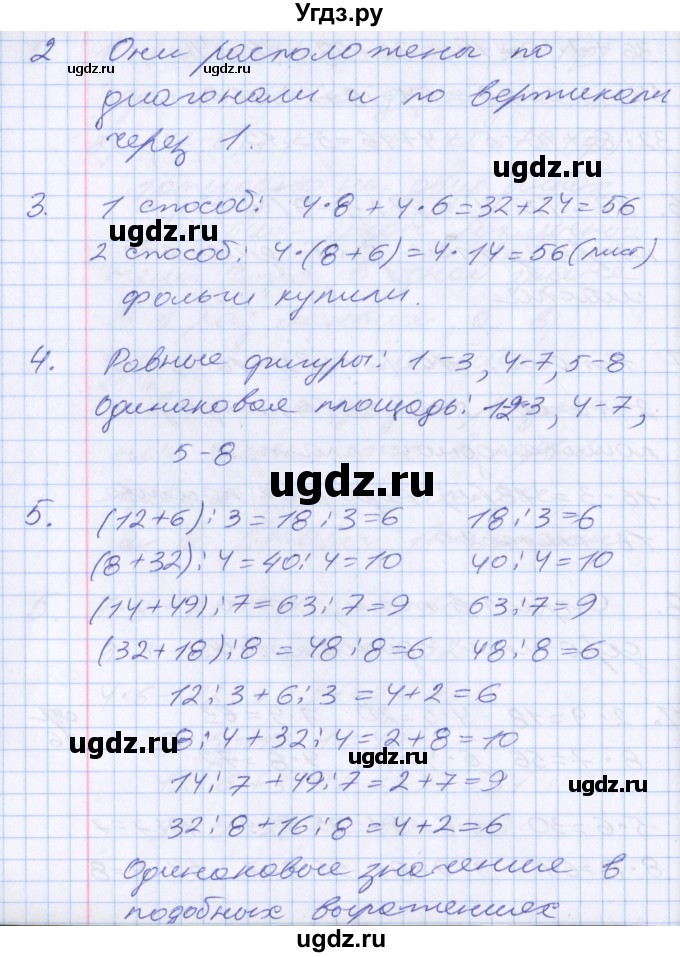 Угдз.ру
2 Они расположены по
ugdz.ru ugdz.ru
диагонали и по вертикали
через 1.
ugdz.ru
3. 1 способ: 4·8+4·6=32+24=56
ugdz.ru
2 способ: 4·(8+6)=4·14=56(лист)
фольги купили.
4. Равные фигуры: 1-3, 4-7, 5-8
Одинаковая площадь: 1-3, 4-7,
5-8
ugdz.ru
5. (12+6):3=18:3=6 18:3=6
(8+32):4=40:4=10 40:4=10
(14+49):7=63:7=9 63:7=9
(32+18):8=48:8=6 48:8=6
12:3+6:3=4+2=6
8:4+32:4=2+8=10
ugdz.ru
14:7+49:7=2+7=9
ugdz.ru
32:8+16:8=4+2=6
Одинаковые значения в
подобных выражениях
ugdz.ru